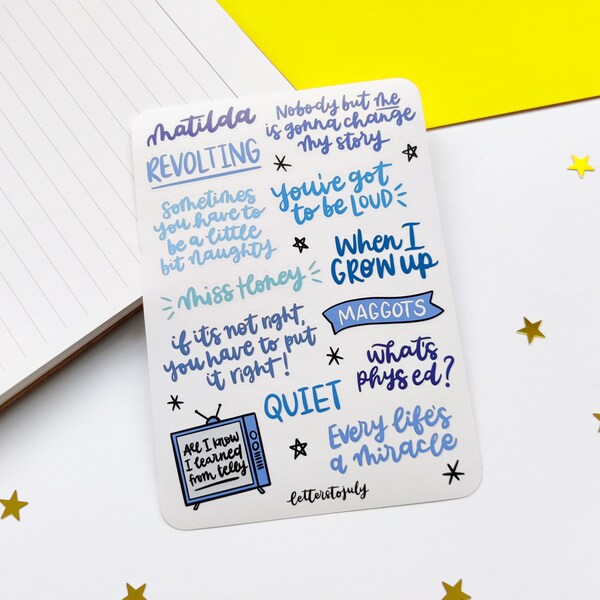 Matilda
Nobody but me
is gonna change
my story
REVOLTING
You've got
to be LOUD
Sometimes
you have to
be a little
bit naughty
When I
GROW UP
Miss Honey
MAGGOTS
if it's not right,
you have to put
it right!
what's
phys ed?
QUIET
Every life's
a miracle
All I know
I learned
from telly
letterstojuly